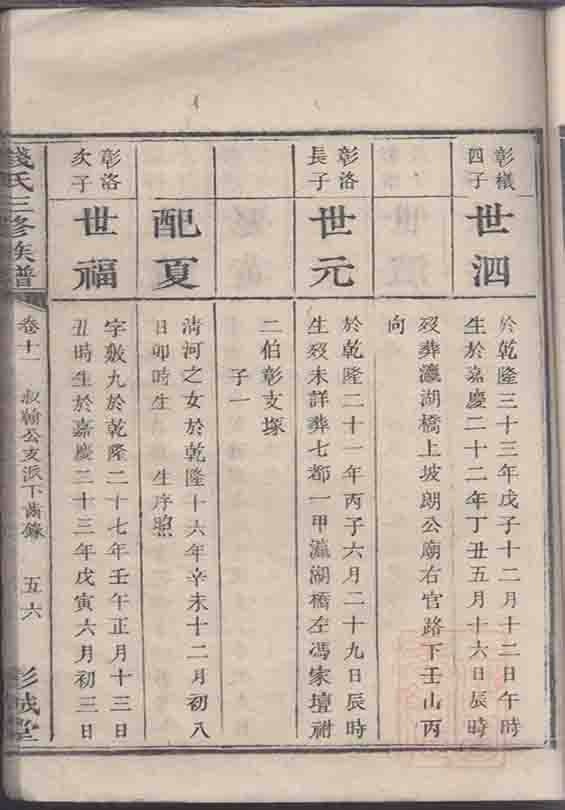 彰檥
四子
世泗
於乾隆三十三年戊子十二月十二日午時
生於嘉慶二十二年丁丑五月十六日辰時
歿葬瀛湖橋上坡朗公廟右官路下壬山丙
向
彰洛
長子
世元
於乾隆二十一年丙子六月二十九日辰時
生歿未詳葬七都一甲瀛湖橋左馮家壇祔
二伯彰支塚
子一
配夏
清河之女於乾隆十六年辛未十二月初八
日卯時生 生序照
彰洛
次子
世福
字敷九於乾隆二十七年壬午正月十三日
丑時生於嘉慶二十三年戊寅六月初三日
錢氏三修族譜
卷十一
叔翰公支派下齒錄
五六
彭城堂